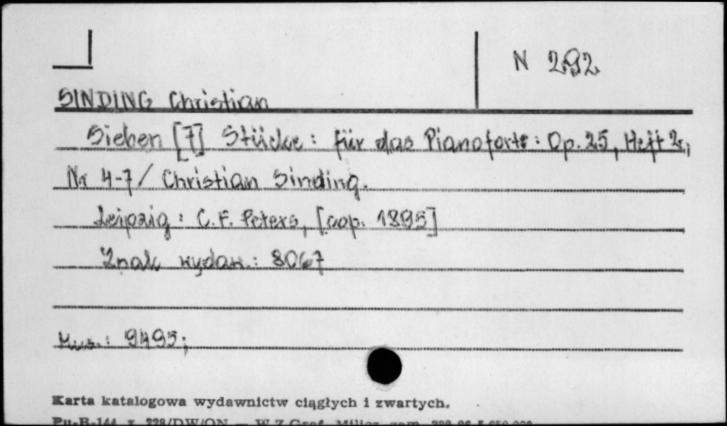 N 292
SINDING Christian
Sieben [7] Stücke : für das Pianoforte : Op. 25, Heft 2,
Nr 4-7 / Christian Sinding.
Leipzig : C. F. Peters, [cop. 1895]
Znak wydaw.: 8067
Mus.: 9495;
Karta katalogowa wydawnictw ciągłych i zwartych.
Pu-B-144